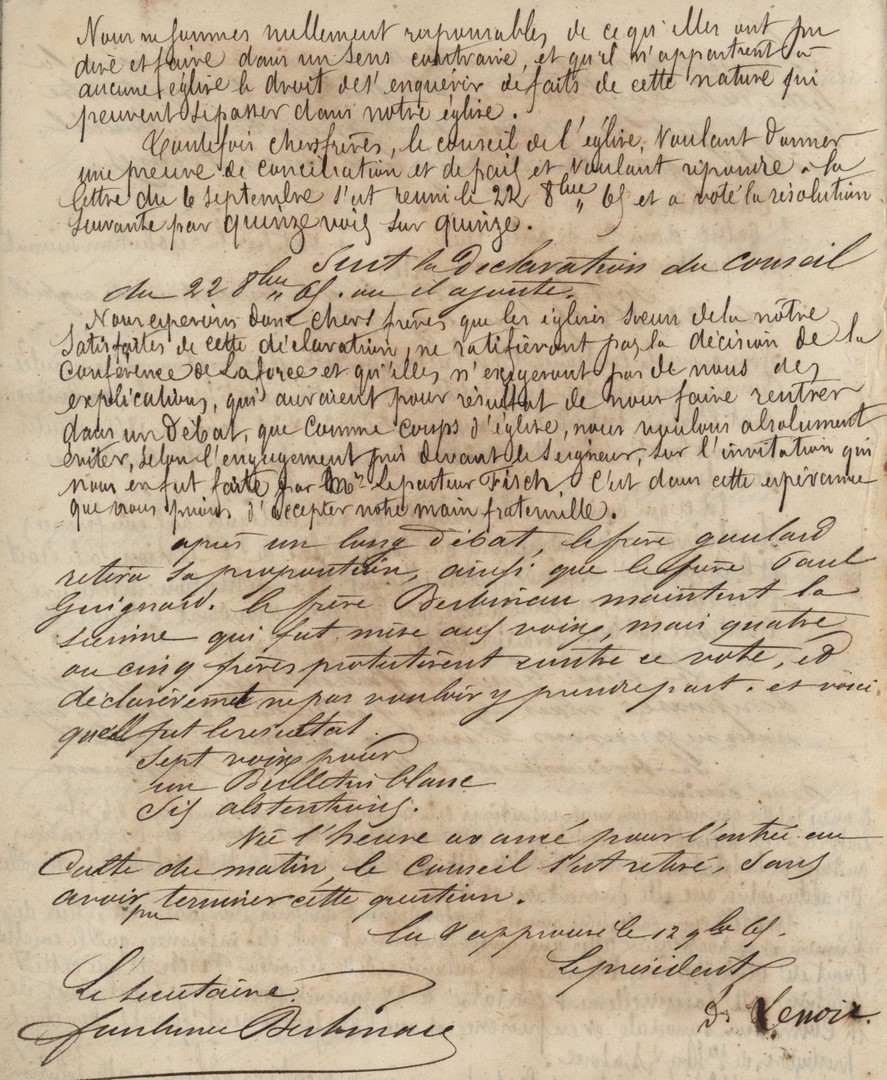 Nous ne sommes nullement responsables de ce qu'elles ont pu
dire et faire dans un sens contraire, et qu'il n'appartient à
aucune église le droit de s'enquérir de faits de cette nature qui
peuvent se passer dans notre église.
Toutefois chers frères, le conseil de l'église, voulant donner
une preuve de conciliation et de paix et voulant répondre à la
lettre du 6 septembre s'est reuni le 22 8bre 65 et a voté la résolution
suivante par quinze voix sur quinze.
Suit la Déclaration du conseil
du 22 8bre 65. ou il ajoute.
Nous espérons donc chers frères que les églises sœurs de la nôtre
satisfaites de cette déclaration, ne ratifieront pas la décision de la
Conférence de Laforce et qu'elles n'exigeront pas de nous des
explications, qui auraient pour résultat de nous faire rentrer
dans un Débat, que comme corps d'église, nous voulons absolument
éviter, selon l'engagement pris devant le Seigneur, sur l'invitation qui
nous en fut faite par Mr le pasteur Fisch. C'est dans cette espérance
que nous vous prions d'accepter notre main fraternelle.
après un long débat, le frère goulard
retira sa proposition, ainsi que le frère Paul
Guignard. le frère Berbineau maintent la
sienne qui fut mise aux voix, mais quatre
ou cinq frères protestèrent contre ce vote, et
déclarèrent ne pas vouloir y prendre part. et voici
quell fut le resultat.
Sept voix pour
un Bulletin blanc
Six abstentions.
Vu l'heure avancé pour l'entrée au
Culte du matin, le Conseil s'est retiré, sans
avoir pu terminer cette question.
lu & approuvé le 12 9bre 65.
Le président
Le secrétaire
D. Lenoir.
Berbineau